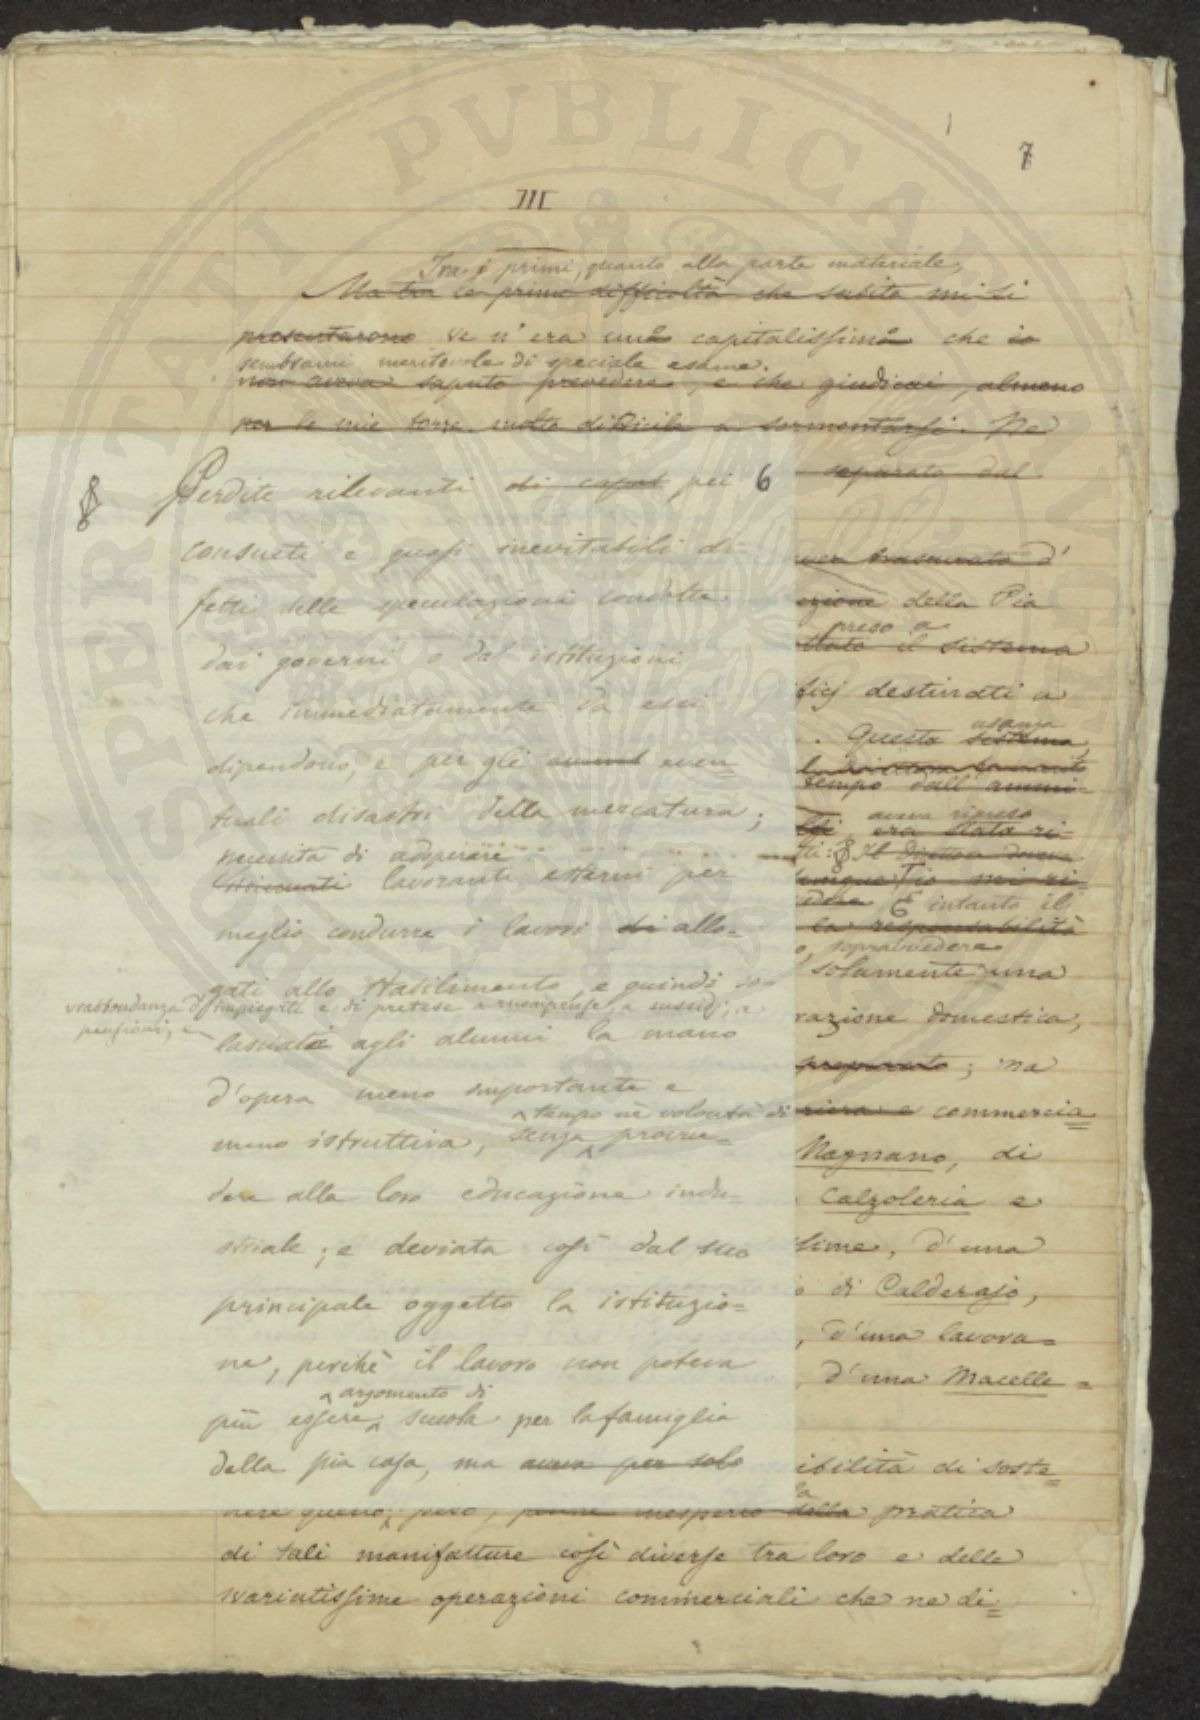 7
III
Tra i primi, quanto alla parte materiale,
Ma tra le prime difficoltà che subito mi si
presentarono ve n'era una capitalissima che io
sembrami meritevole di speciale esame.
non aveva saputo prevedere, e che giudicai, almeno
per le mie forze, molto difficile a sormontarsi. Ne
separato dal
Perdite rilevanti di capit pei 6
consueti e quasi inevitabili di-
fetti delle speculazioni condotte
dai governi o dal istituzioni
che immediatamente da essi
dipendono, e per gli even-
tuali disastri della mercatura;
necessità di adoperare
lavoranti esterni per
meglio condurre i lavori di allo-
gati allo stabilimento, e quindi so-
vrabbondanza d'impiegati e di pretese a ricompense, a sussidj, a
pensioni; e
lasciata agli alunni la mano
d'opera meno importante e
tempo nè volontà di
meno istruttiva, senza provve-
dere alla loro educazione indu-
striale; e deviata così dal suo
principale oggetto la istituzio=
ne, perchè il lavoro non poteva
argomento di
più essere scuola per la famiglia
della pia casa, ma aveva per solo
aver trascurato d'
ezione della Pia
preso a
ottato il sistema
ficj destinati a
usanza
. Questo sistema
tempo dall'ammi-
aveva ripreso
era stato ri-
ti: Il Direttore doveva
dunque Tio mi ri-
E intanto il
la responsabilità
o, sopravvedere
solamente una
razione domestica,
preparato; ma
riera e commercia
Magnano, di
Calzoleria e
sime, d'una
o di Calderajo,
, d'una lavora=
, d'una Macelle=
ibilità di soste=
la
nere questo peso, inesperto della pratica
di tali manifatture così diverse tra loro e delle
svariatissime operazioni commerciali che ne di=
SPERITATI PVBLICAE